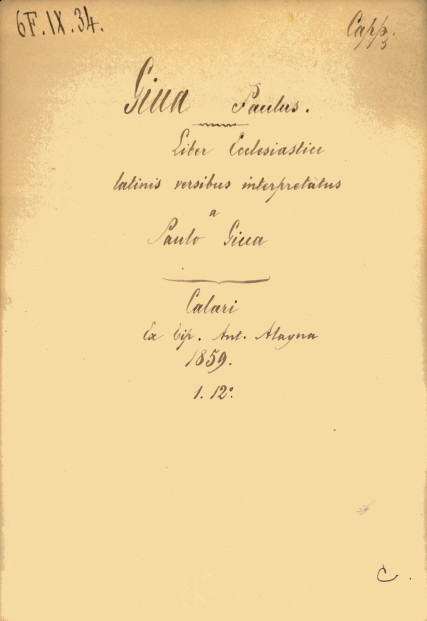 6F.IX.34.
Capp.
3
Giua Paulus.
Liber Ecclesiastici
latinis versibus interpretatus
a
Paulo Giua
Calari
Ex Tip. Ant. Alagna
1859.
1. 12°.
C.